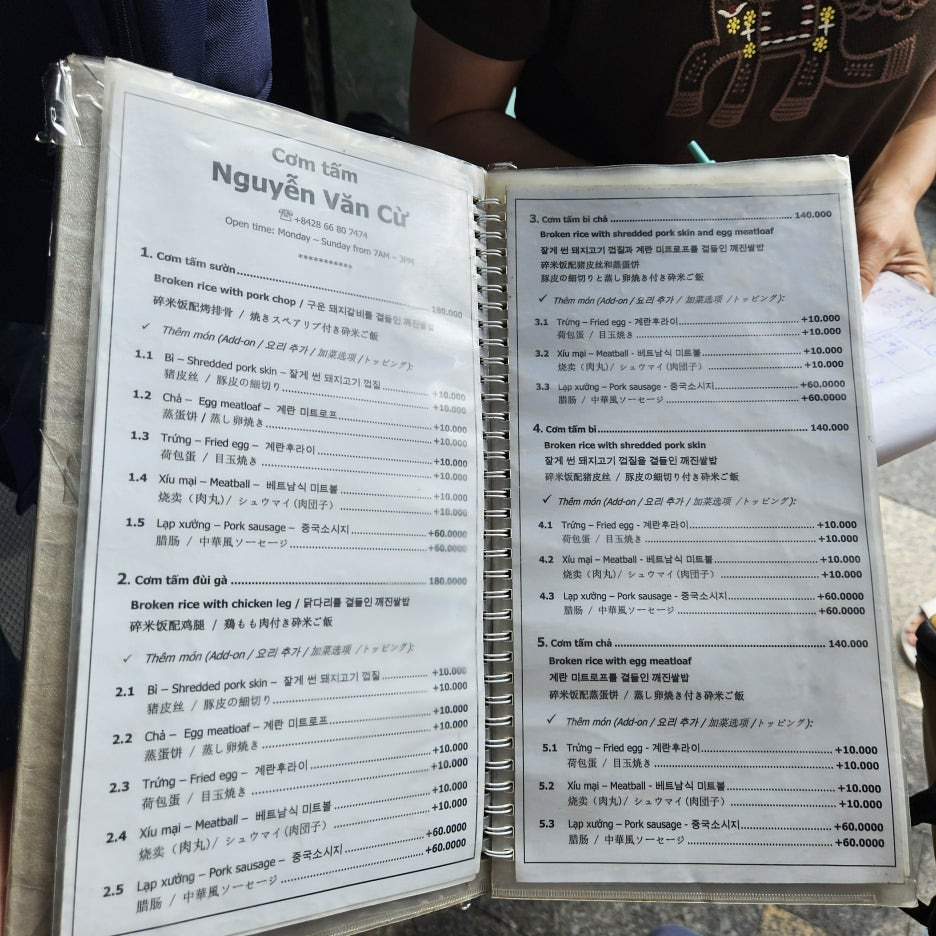 Cơm tấm
Nguyễn Văn Cừ
☏+8428 66 80 7474
Open time: Monday – Sunday from 7AM – 3PM
***********
1. Cơm tấm sườn 180.000
Broken rice with pork chop / 구운 돼지갈비를 곁들인 깨진쌀밥
碎米饭配烤排骨 / 焼きスペアリブ付き砕米ご飯
✓ Thêm món (Add-on / 요리 추가 / 加菜选项 /トッピング):
1.1 Bì – Shredded pork skin – 잘게 썬 돼지고기 껍질 +10.000
猪皮丝 / 豚皮の細切り +10.000
1.2 Chả – Egg meatloaf – 계란 미트로프 +10.000
蒸蛋饼 / 蒸し卵焼き +10.000
1.3 Trứng – Fried egg – 계란후라이 +10.000
荷包蛋 / 目玉焼き +10.000
1.4 Xíu mại – Meatball – 베트남식 미트볼 +10.000
烧卖（肉丸）/ シュウマイ（肉団子） +10.000
1.5 Lạp xưởng – Pork sausage – 중국소시지 +60.0000
腊肠 / 中華風ソーセージ +60.0000
2. Cơm tấm đùi gà 180.0000
Broken rice with chicken leg / 닭다리를 곁들인 깨진쌀밥
碎米饭配鸡腿 / 鶏もも肉付き砕米ご飯
✓ Thêm món (Add-on / 요리 추가 / 加菜选项 /トッピング):
2.1 Bì – Shredded pork skin – 잘게 썬 돼지고기 껍질 +10.000
猪皮丝 / 豚皮の細切り +10.000
2.2 Chả – Egg meatloaf – 계란 미트로프 +10.000
蒸蛋饼 / 蒸し卵焼き +10.000
2.3 Trứng – Fried egg – 계란후라이 +10.000
荷包蛋 / 目玉焼き +10.000
2.4 Xíu mại – Meatball – 베트남식 미트볼 +10.000
烧卖（肉丸）/ シュウマイ（肉団子） +10.000
2.5 Lạp xưởng – Pork sausage – 중국소시지 +60.0000
腊肠 / 中華風ソーセージ +60.0000
3. Cơm tấm bì chả 140.000
Broken rice with shredded pork skin and egg meatloaf
잘게 썬 돼지고기 껍질과 계란 미트로프를 곁들인 깨진쌀밥
碎米饭配猪皮丝和蒸蛋饼
豚皮の細切りと蒸し卵焼き付き砕米ご飯
✓ Thêm món (Add-on / 요리 추가 / 加菜选项 /トッピング):
3.1 Trứng – Fried egg - 계란후라이 +10.000
荷包蛋 / 目玉焼き +10.000
3.2 Xíu mại – Meatball - 베트남식 미트볼 +10.000
烧卖（肉丸）/ シュウマイ（肉団子） +10.000
3.3 Lạp xưởng – Pork sausage - 중국소시지 +60.0000
腊肠 / 中華風ソーセージ +60.0000
4. Cơm tấm bì 140.000
Broken rice with shredded pork skin
잘게 썬 돼지고기 껍질을 곁들인 깨진쌀밥
碎米饭配猪皮丝 / 豚皮の細切り付き砕米ご飯
✓ Thêm món (Add-on / 요리 추가 / 加菜选项 /トッピング):
4.1 Trứng – Fried egg - 계란후라이 +10.000
荷包蛋 / 目玉焼き +10.000
4.2 Xíu mại – Meatball - 베트남식 미트볼 +10.000
烧卖（肉丸）/ シュウマイ（肉団子） +10.000
4.3 Lạp xưởng – Pork sausage - 중국소시지 +60.0000
腊肠 / 中華風ソーセージ +60.0000
5. Cơm tấm chả 140.000
Broken rice with egg meatloaf
계란 미트로프를 곁들인 깨진쌀밥
碎米饭配蒸蛋饼 / 蒸し卵焼き付き砕米ご飯
✓ Thêm món (Add-on / 요리 추가 / 加菜选项 /トッピング):
5.1 Trứng – Fried egg - 계란후라이 +10.000
荷包蛋 / 目玉焼き +10.000
5.2 Xíu mại – Meatball - 베트남식 미트볼 +10.000
烧卖（肉丸）/ シュウマイ（肉団子） +10.000
5.3 Lạp xưởng – Pork sausage - 중국소시지 +60.0000
腊肠 / 中華風ソーセージ +60.0000